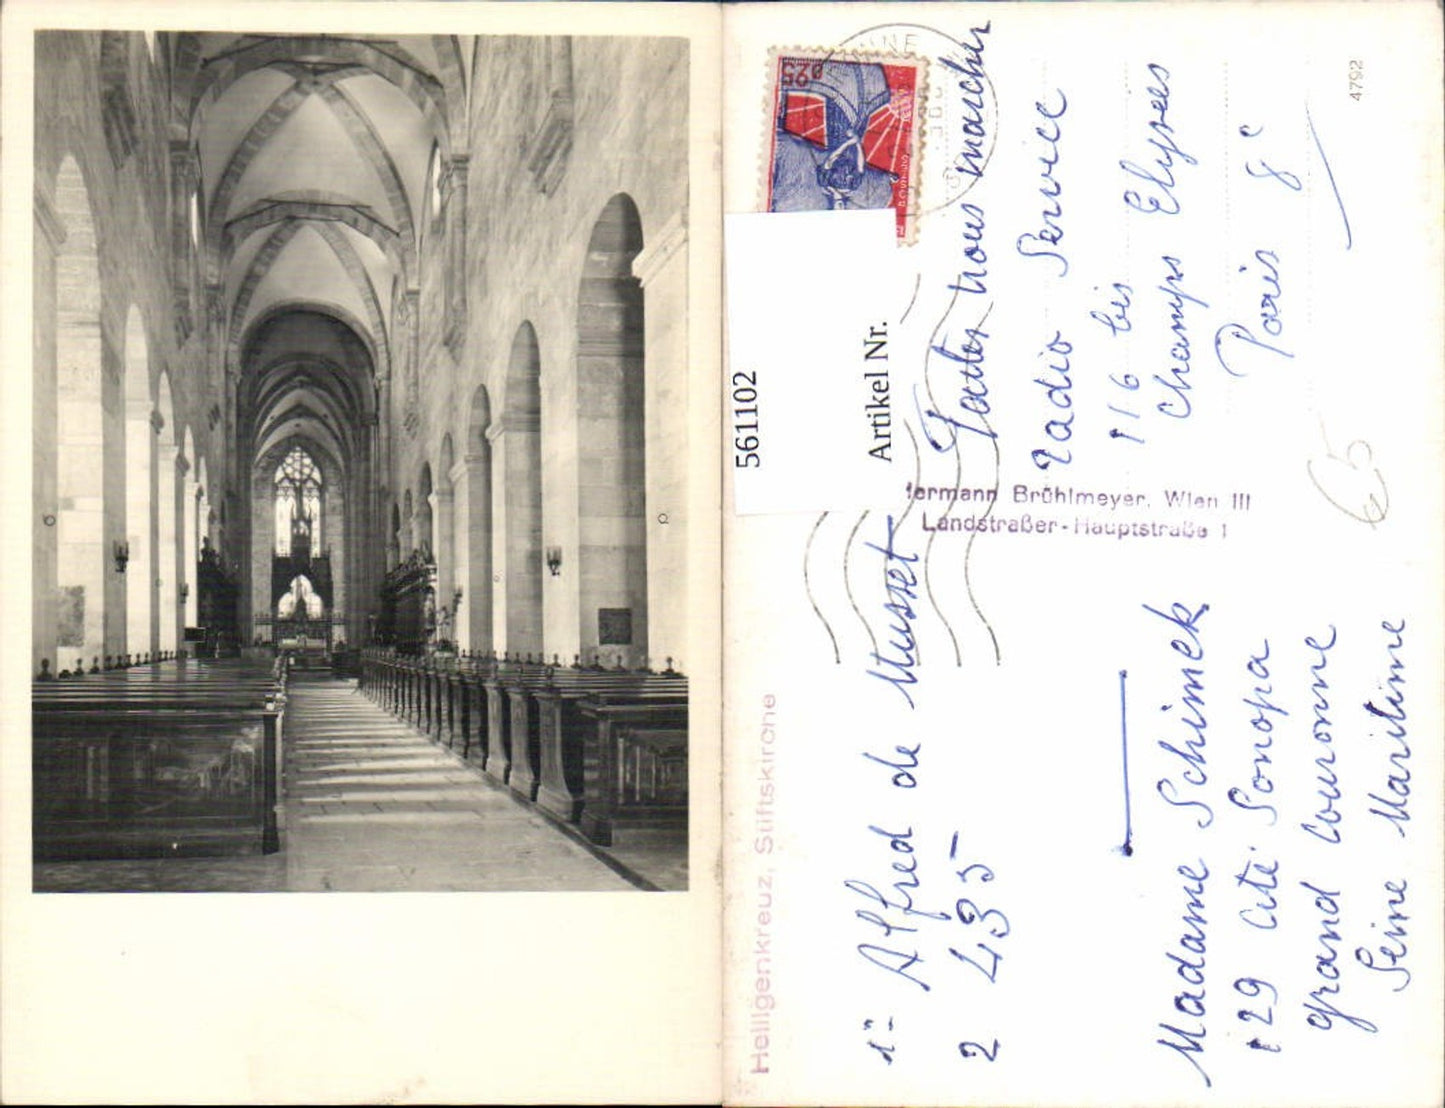 561102
Artikel Nr.
Heiligenkreuz, Stiftskirche
Hermann Brühlmeyer, Wien III
Landstraßer-Hauptstraße 1
4792
0,25
1º Alfred de Musset
2 435
Madame Schimek
129 Cité Sonopa
grand Couronne
Seine Maritime
nous marcher
Radio Service
116 bis
Champs Elysees
Paris 8e
65